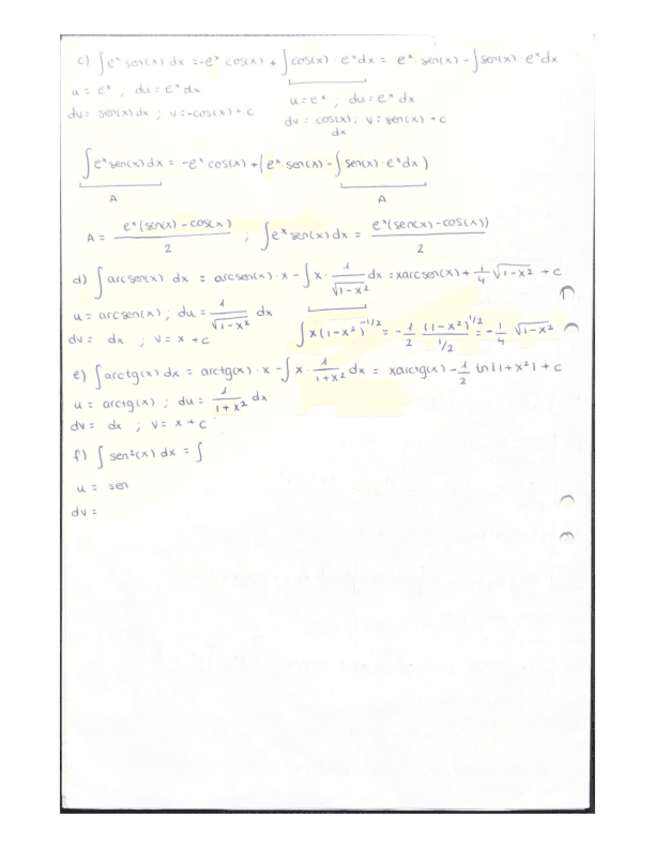 c) ∫eˣ sen(x) dx = -eˣ cos(x) + ∫cos(x) · eˣdx = eˣ sen(x) - ∫sen(x) · eˣdx
u = eˣ ; du = eˣ dx u = eˣ ; du = eˣ dx
dv = sen(x) dx ; v = -cos(x) + c dv = cos(x) ; v = sen(x) + c
dx
∫eˣ sen(x) dx = -eˣ · cos(x) + (eˣ sen(x) - ∫sen(x) · eˣdx)
A A
A = eˣ(sen(x) - cos(x))/2 ; ∫eˣ sen(x) dx = eˣ(sen(x) - cos(x))/2
d) ∫arcsen(x) dx = arcsen(x) · x - ∫x · 1/√(1-x²) dx = xarcsen(x) + 1/4 √(1-x²) + c
u = arcsen(x) ; du = 1/√(1-x²) dx
dv = dx ; v = x + c ∫x(1-x²)^(-1/2) = -1/2 (1-x²)^(1/2)/(1/2) = -1/4 √(1-x²)
e) ∫arctg(x) dx = arctg(x) · x - ∫x · 1/(1+x²) dx = xarctg(x) - 1/2 ln|1+x²| + c
u = arctg(x) ; du = 1/(1+x²) dx
dv = dx ; v = x + c
f) ∫sen²(x) dx = ∫
u = sen
dv =